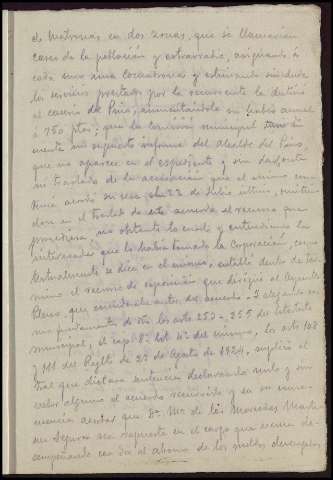 de Matronas, en dos zonas, que se llamarían
casco de la población y extrarradio, asignando á
cada una una Comadrona y estimando sin duda
los servicios prestados por la recurrente la destinó
al caserío de Pino, aumentándole su haber anual
á 750 ptas; que la Comisión municipal
mente un supuesto informe del Alcalde del Pino,
que no aparece en el expediente y sin
ni traslado de la acusación que el mismo
acordó su cese el 22 de Julio último,
en el traslado de este acuerdo el recurso que
procediera, no obstante lo cual y entendiendo la
interesada que lo había tomado la Corporación, como
textualmente se dice en el mismo, entabló dentro de tér
mino el recurso de reposición que dirigió al Ayunta
Pleno, que coincide autor del acuerdo. Y alegando co
mo fundamentos de dro los arts 253 - 255 del Estatuto
municipal, el cap. 8º tit. 4º del mismo, los arts 108
y 111 del Regltº de 23 de Agosto de 1924, suplicó al
tral que dictara sentencia declarando nulo y sin
valor alguno el acuerdo recurrido y en su conse
cuencia
que Dª Mª de las Mercedes Martín
Segura sea repuesta en el cargo que venía de-
sempeñando con dro al abono de los sueldos devengados